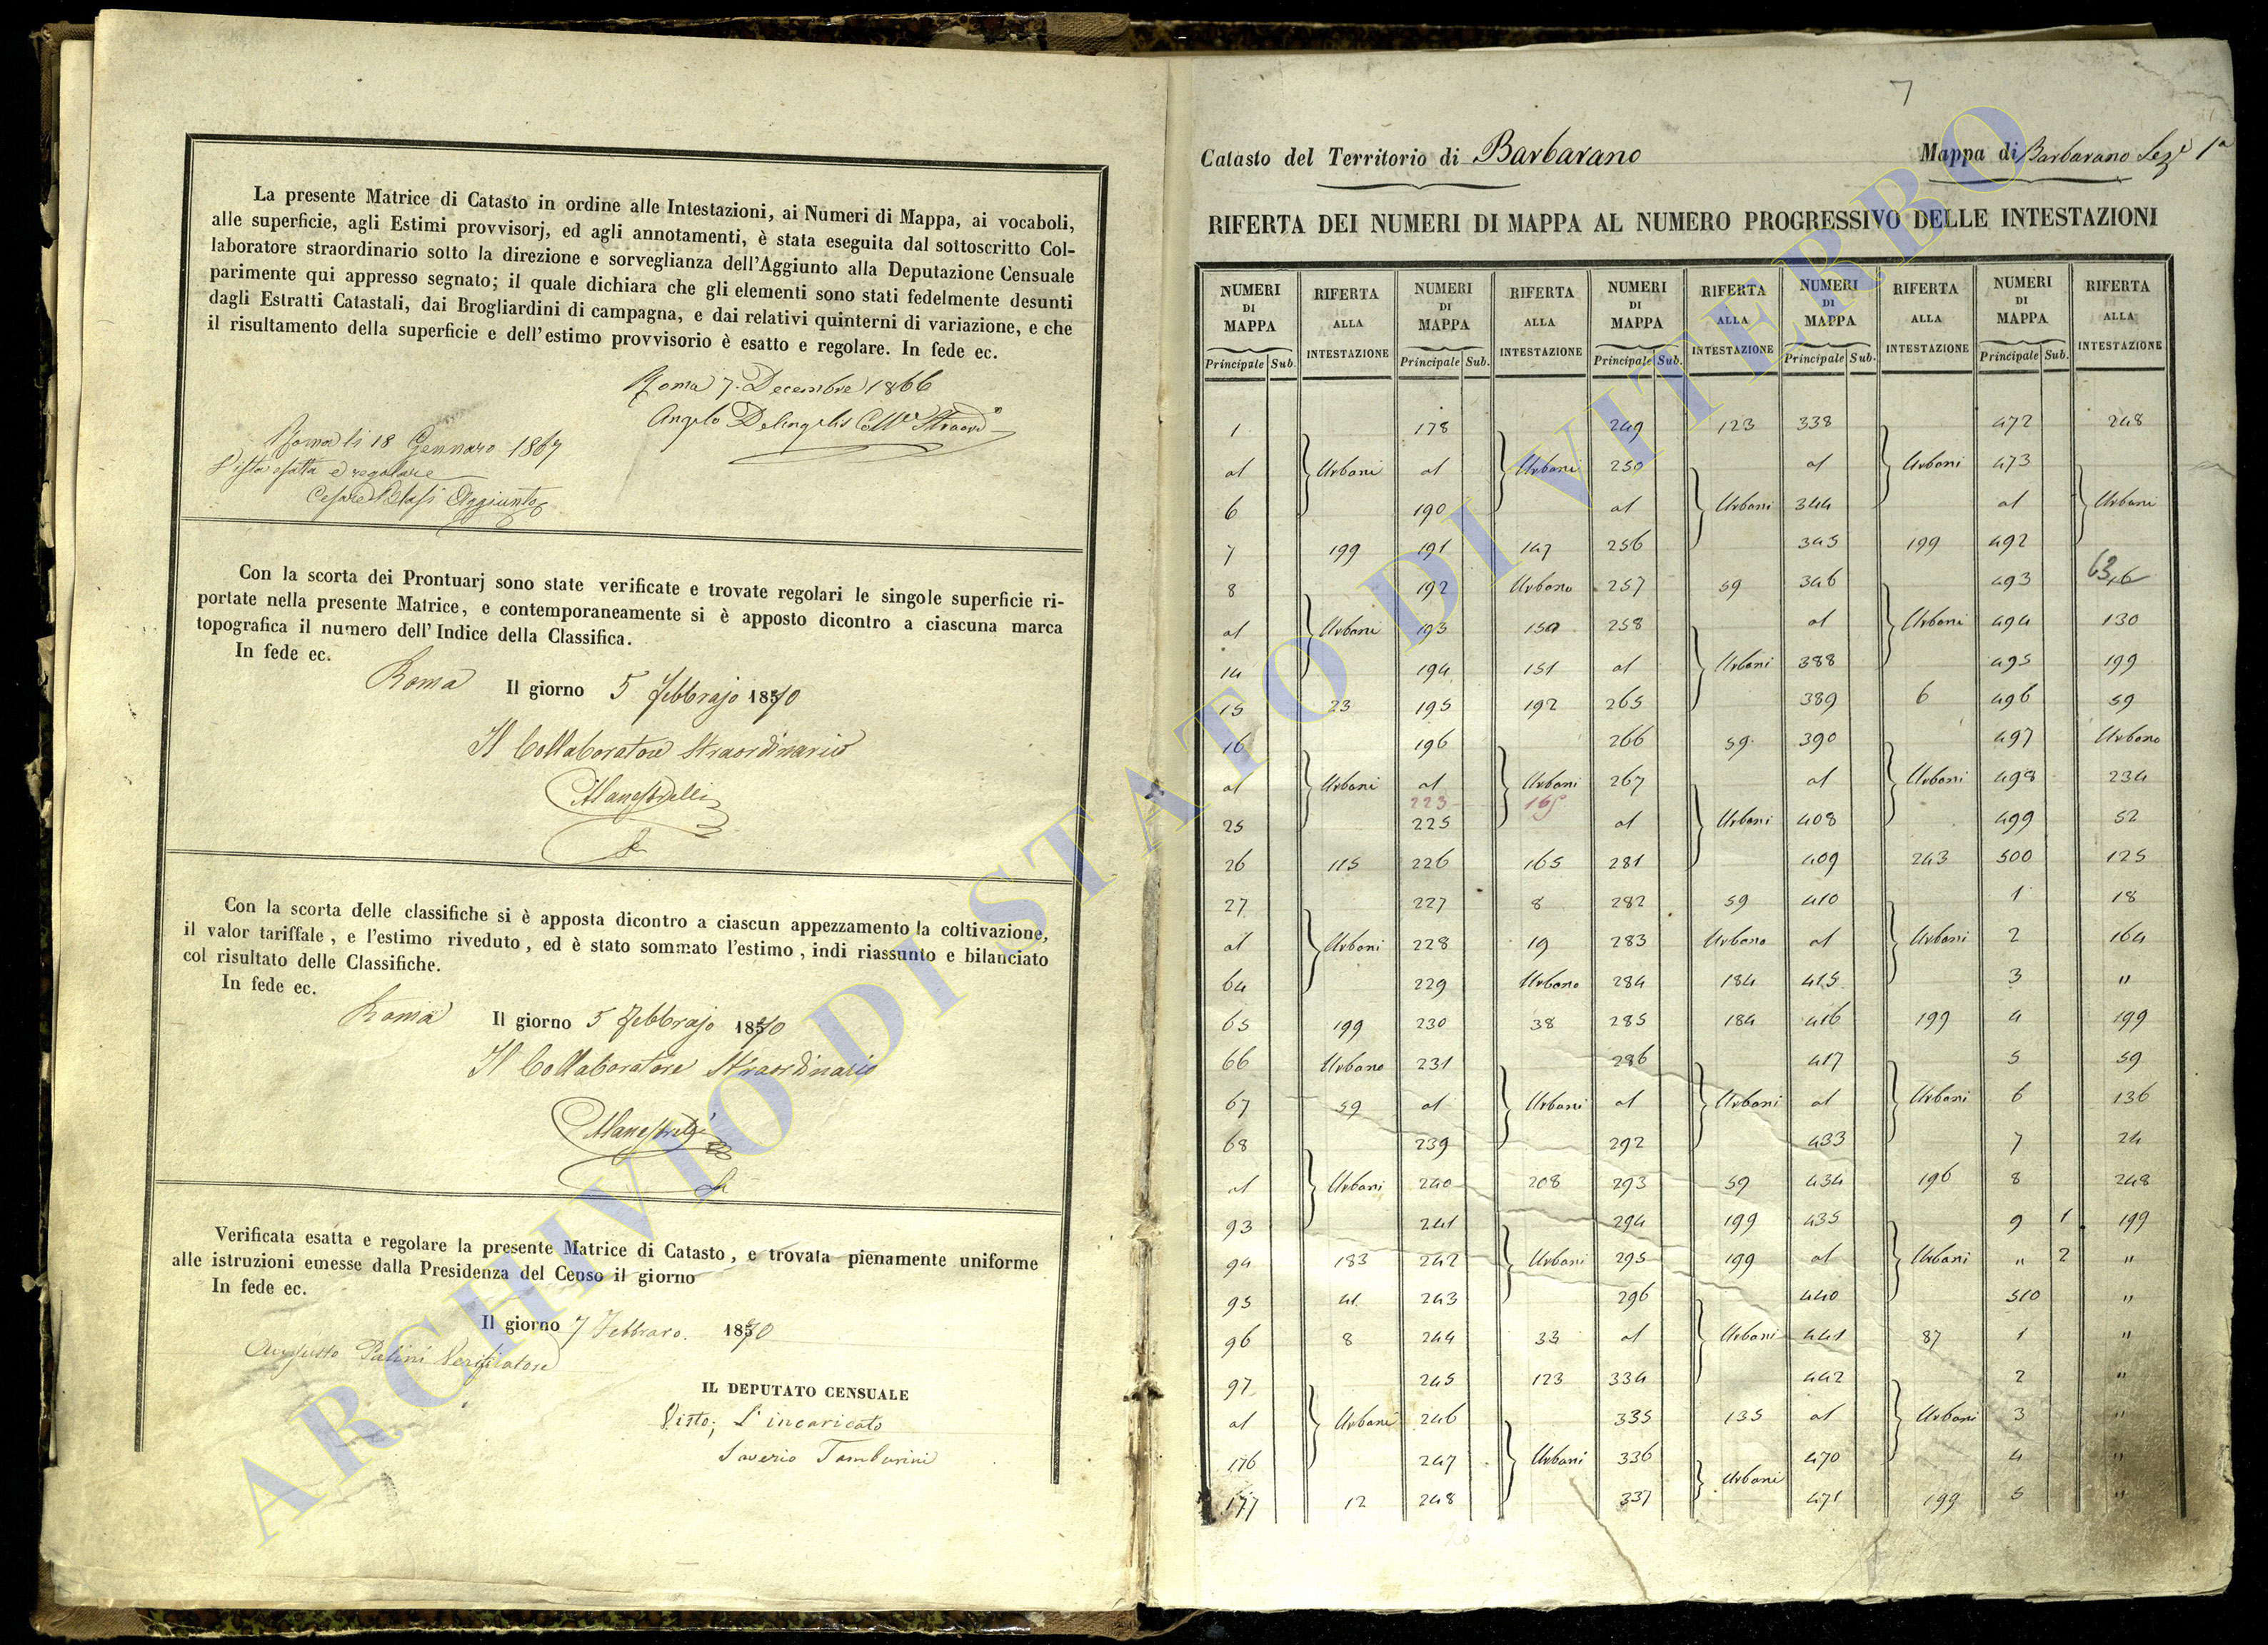 La presente Matrice di Catasto in ordine alle Intestazioni, ai Numeri di Mappa, ai vocaboli,
alle superficie, agli Estimi provvisorj, ed agli annotamenti, è stata eseguita dal sottoscritto Col-
laboratore straordinario sotto la direzione e sorveglianza dell'Aggiunto alla Deputazione Censuale
parimente qui appresso segnato; il quale dichiara che gli elementi sono stati fedelmente desunti
dagli Estratti Catastali, dai Brogliardini di campagna, e dai relativi quinterni di variazione, e che
il risultamento della superficie e dell'estimo provvisorio è esatto e regolare. In fede ec.
Roma 7. Decembre 1866
Angelo Delingelis Coll.e Straord.
Roma li 18 Gennaro 1867
Vista esatta e regolare
Cesare Aggiunto
Con la scorta dei Prontuarj sono state verificate e trovate regolari le singole superficie ri-
portate nella presente Matrice, e contemporaneamente si è apposto dicontro a ciascuna marca
topografica il numero dell'Indice della Classifica.
In fede ec.
Roma Il giorno 5 febbrajo 1870
Il Collaboratore Straordinario
Manestrelli
Con la scorta delle classifiche si è apposta dicontro a ciascun appezzamento la coltivazione,
il valor tariffale, e l'estimo riveduto, ed è stato sommato l'estimo, indi riassunto e bilanciato
col risultato delle Classifiche.
In fede ec.
Roma Il giorno 5 febbrajo 1870
Il Collaboratore Straordinario
Manestrelli
Verificata esatta e regolare la presente Matrice di Catasto, e trovata pienamente uniforme
alle istruzioni emesse dalla Presidenza del Censo il giorno
In fede ec.
Il giorno 7 Febbraro. 1870
Augusto Palini Verificatore
IL DEPUTATO CENSUALE
Visto; L'incaricato
Saverio Tamburini
7
Catasto del Territorio di Barbarano Mappa di Barbarano Sez.e 1a
RIFERTA DEI NUMERI DI MAPPA AL NUMERO PROGRESSIVO DELLE INTESTAZIONI
NUMERI DI MAPPA RIFERTA ALLA INTESTAZIONE NUMERI DI MAPPA RIFERTA ALLA INTESTAZIONE NUMERI DI MAPPA RIFERTA ALLA INTESTAZIONE NUMERI DI MAPPA RIFERTA ALLA INTESTAZIONE NUMERI DI MAPPA RIFERTA ALLA INTESTAZIONE
Principale Sub. Principale Sub. Principale Sub. Principale Sub. Principale Sub.
1 178 249 123 338 472 248
al Urbani al Urbani 250 al Urbani 473
6 190 al Urbani 344 al Urbani
7 199 191 147 256 345 199 492
8 192 Urbano 257 59 346 493
al Urbani 193 150 258 al Urbani 494 130
14 194 151 al Urbani 388 495 199
15 23 195 192 265 389 6 496 59
16 196 266 59 390 497 Urbano
al Urbani al Urbani 267 al Urbani 498 234
223 165
25 225 al Urbani 408 499 52
26 115 226 165 281 409 243 500 125
27 227 8 282 59 410 1 18
al Urbani 228 19 283 Urbano al Urbani 2 164
64 229 Urbano 284 184 415 3 "
65 199 230 38 285 184 416 199 4 199
66 Urbano 231 286 417 5 59
67 59 al Urbani al Urbani al Urbani 6 136
68 239 292 433 7 24
al Urbani 240 208 293 59 434 196 8 248
93 241 294 199 435 9 1 199
94 183 242 Urbani 295 199 al Urbani " 2 "
95 41 243 296 440 510 "
96 8 244 33 al Urbani 441 87 1 "
97 245 123 334 442 2 "
al Urbani 246 335 135 al Urbani 3 "
176 247 Urbani 336 Urbani 470 4 "
177 12 248 337 471 199 5 "
ARCHIVIO DI STATO DI VITERBO